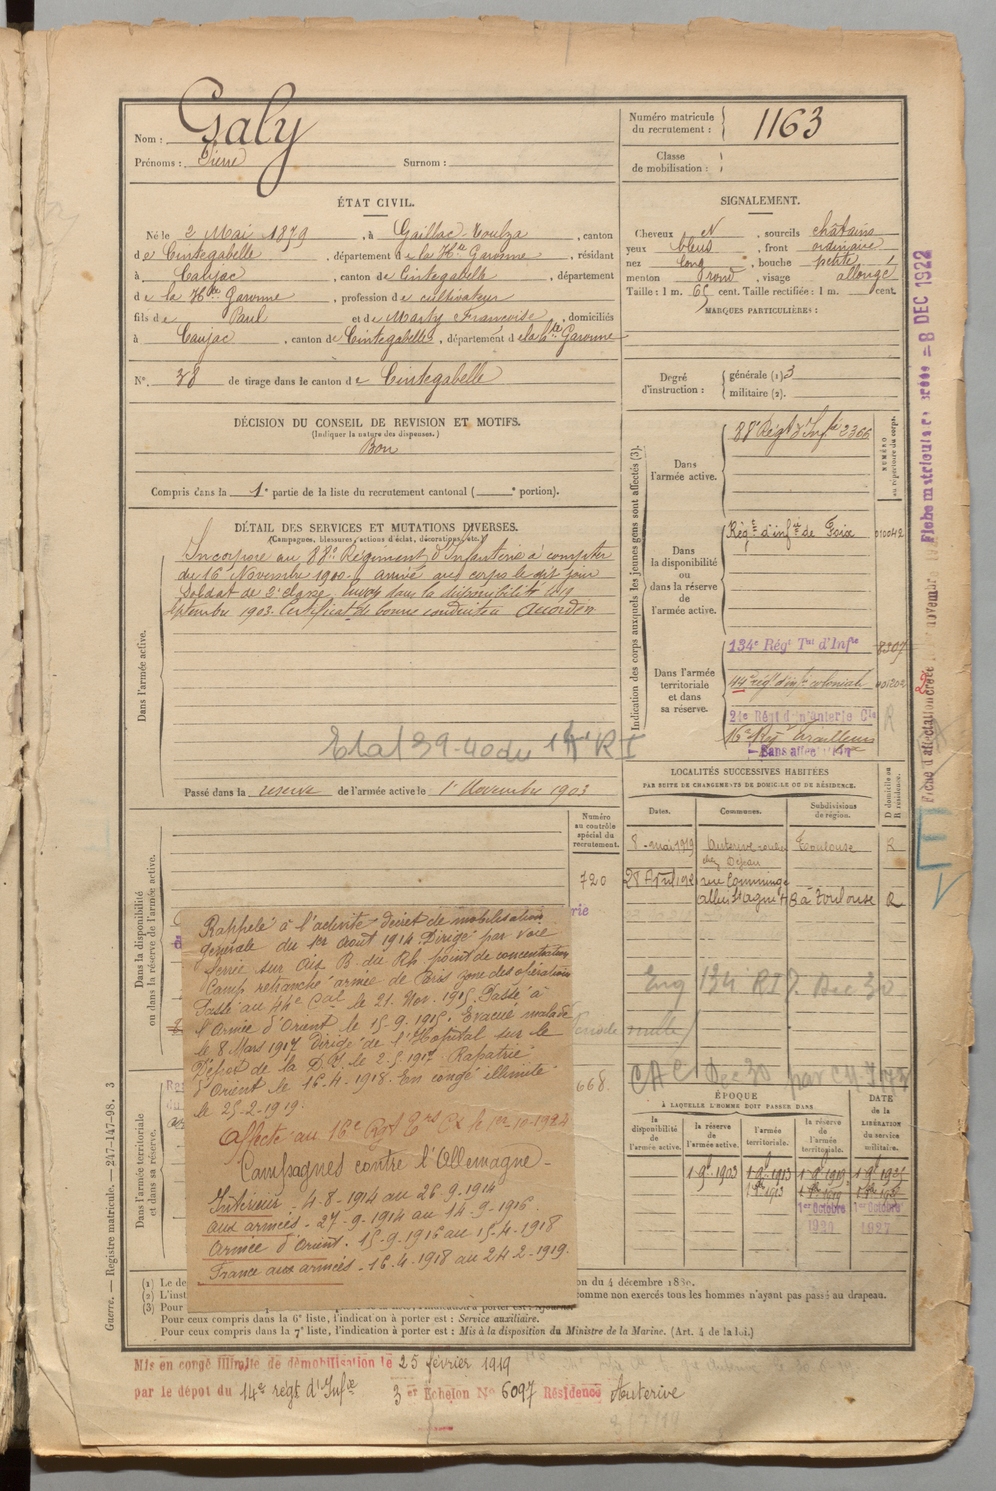 Nom : Galy
Prénoms : Pierre Surnom :
Numéro matricule du recrutement : 1163
Classe de mobilisation :
ÉTAT CIVIL.
Né le 2 Mai 1879, à Gaillac-Toulza, canton
de Cintegabelle, département de la Hte Garonne, résidant
à Caujac, canton de Cintegabelle, département
de la Hte Garonne, profession de cultivateur
fils de Paul et de Marty Françoise, domiciliés
à Caujac, canton de Cintegabelle, département de la Hte Garonne
No. 38 de tirage dans le canton de Cintegabelle
SIGNALEMENT.
Cheveux N, sourcils châtains
yeux bleus, front ordinaire
nez long, bouche petite
menton rond, visage allongé
Taille : 1 m. 65 cent. Taille rectifiée : 1 m. cent.
MARQUES PARTICULIÈRES :
Degré d'instruction : générale (1) 3
militaire (2).
DÉCISION DU CONSEIL DE REVISION ET MOTIFS.
(Indiquer la nature des dispenses.)
Bon
Compris dans la 1e partie de la liste du recrutement cantonal ( e portion).
DÉTAIL DES SERVICES ET MUTATIONS DIVERSES.
(Campagnes, blessures, actions d'éclat, décorations, etc.)
Dans l'armée active.
Incorporé au 88e Régiment d'Infanterie à compter
du 16 Novembre 1900. arrivé au corps le dit jour
Soldat de 2e classe. Envoyé dans la disponibilité le 19
septembre 1903. Certificat de bonne conduite "Accordé"
Etat 39-40 du 14e RI
Passé dans la réserve de l'armée active le 1er Novembre 1903
Indication des corps auxquels les jeunes gens sont affectés (3).
NUMÉRO au répertoire du corps.
Dans l'armée active.
88e Régt d'Infie 2366
Dans la disponibilité ou dans la réserve de l'armée active.
Régt d'infie de Foix 010042
Dans l'armée territoriale et dans sa réserve.
134e Régt Tal d'Infie 8307
44e régt d'infie coloniale 001202
24e Régt d'infanterie Cle R
16e Régt Tirailleurs
Sans affectation
Fiche matricule créée = 8 DEC 1922
LOCALITÉS SUCCESSIVES HABITÉES
PAR SUITE DE CHANGEMENTS DE DOMICILE OU DE RÉSIDENCE.
Dates. Communes. Subdivisions de région. D domicile ou R résidence.
8 mai 1919 Auterive Toulouse R
28 Avril 192 rue Comminge
8 à Toulouse R
Dans la disponibilité ou dans la réserve de l'armée active.
Numéro au contrôle spécial du recrutement.
720
668
Rappelé à l'activité décret de mobilisation
générale du 1er Août 1914. Dirigé par voie
ferrée sur Aix B. du Rh. point de concentration
Camp retranché armée de Paris zone des opérations
Passé au 44e Cal le 21. Nov. 1915. Passé à
l'Armée d'Orient le 15-9-1916. Evacué malade
le 8 Mars 1917 dirigé de l'Hôpital sur le
Dépôt de la D.I. le 2-5-1917. Rapatrié
d'Orient le 16-4-1918. En congé illimité
le 25-2-1919.
Affecté au 16e Rgt Trs le 1er 10-1924
Campagnes contre l'Allemagne-
Intérieur : 4-8-1914 au 26-9-1914
aux armées - 27-9-1914 au 14-9-1916
Armée d'Orient - 15-9-1916 au 15-4-1918
France aux armées - 16-4-1918 au 24-2-1919.
Eng 134 RI Dec 30
CAC Dec 30
ÉPOQUE
À LAQUELLE L'HOMME DOIT PASSER DANS
la disponibilité de l'armée active. la réserve de l'armée active. l'armée territoriale. la réserve de l'armée territoriale. DATE de la LIBÉRATION du service militaire.
1-9bre 1903 1-9bre 1913 1-9bre 1919 1-9bre 1925
1er Octobre 1er Octobre
1920 1927
Dans l'armée territoriale et dans sa réserve.
(1) Le de
on du 4 décembre 1889.
(2) L'inst
omme non exercés tous les hommes n'ayant pas passé au drapeau.
(3) Pour
Pour ceux compris dans la 6e liste, l'indication à porter est : Service auxiliaire.
Pour ceux compris dans la 7e liste, l'indication à porter est : Mis à la disposition du Ministre de la Marine. (Art. 4 de la loi.)
Guerre. — Registre matricule. — 247-147-98. 3
Mis en congé illimité de démobilisation le 25 février 1919
par le dépôt du 14e régt d'Infie 3er Echelon No 6097 Résidence Auterive